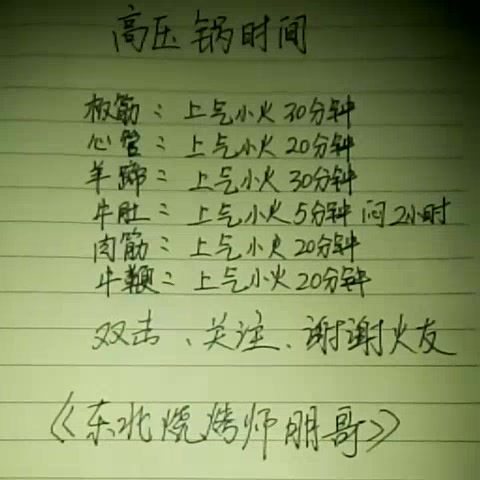 高压锅时间
板筋：上气小火30分钟
心管：上气小火20分钟
羊蹄：上气小火30分钟
牛肚：上气小火5分钟 闷2小时
肉筋：上气小火20分钟
牛鞭：上气小火20分钟
双击、关注、谢谢火友
《东北烧烤师朋哥》